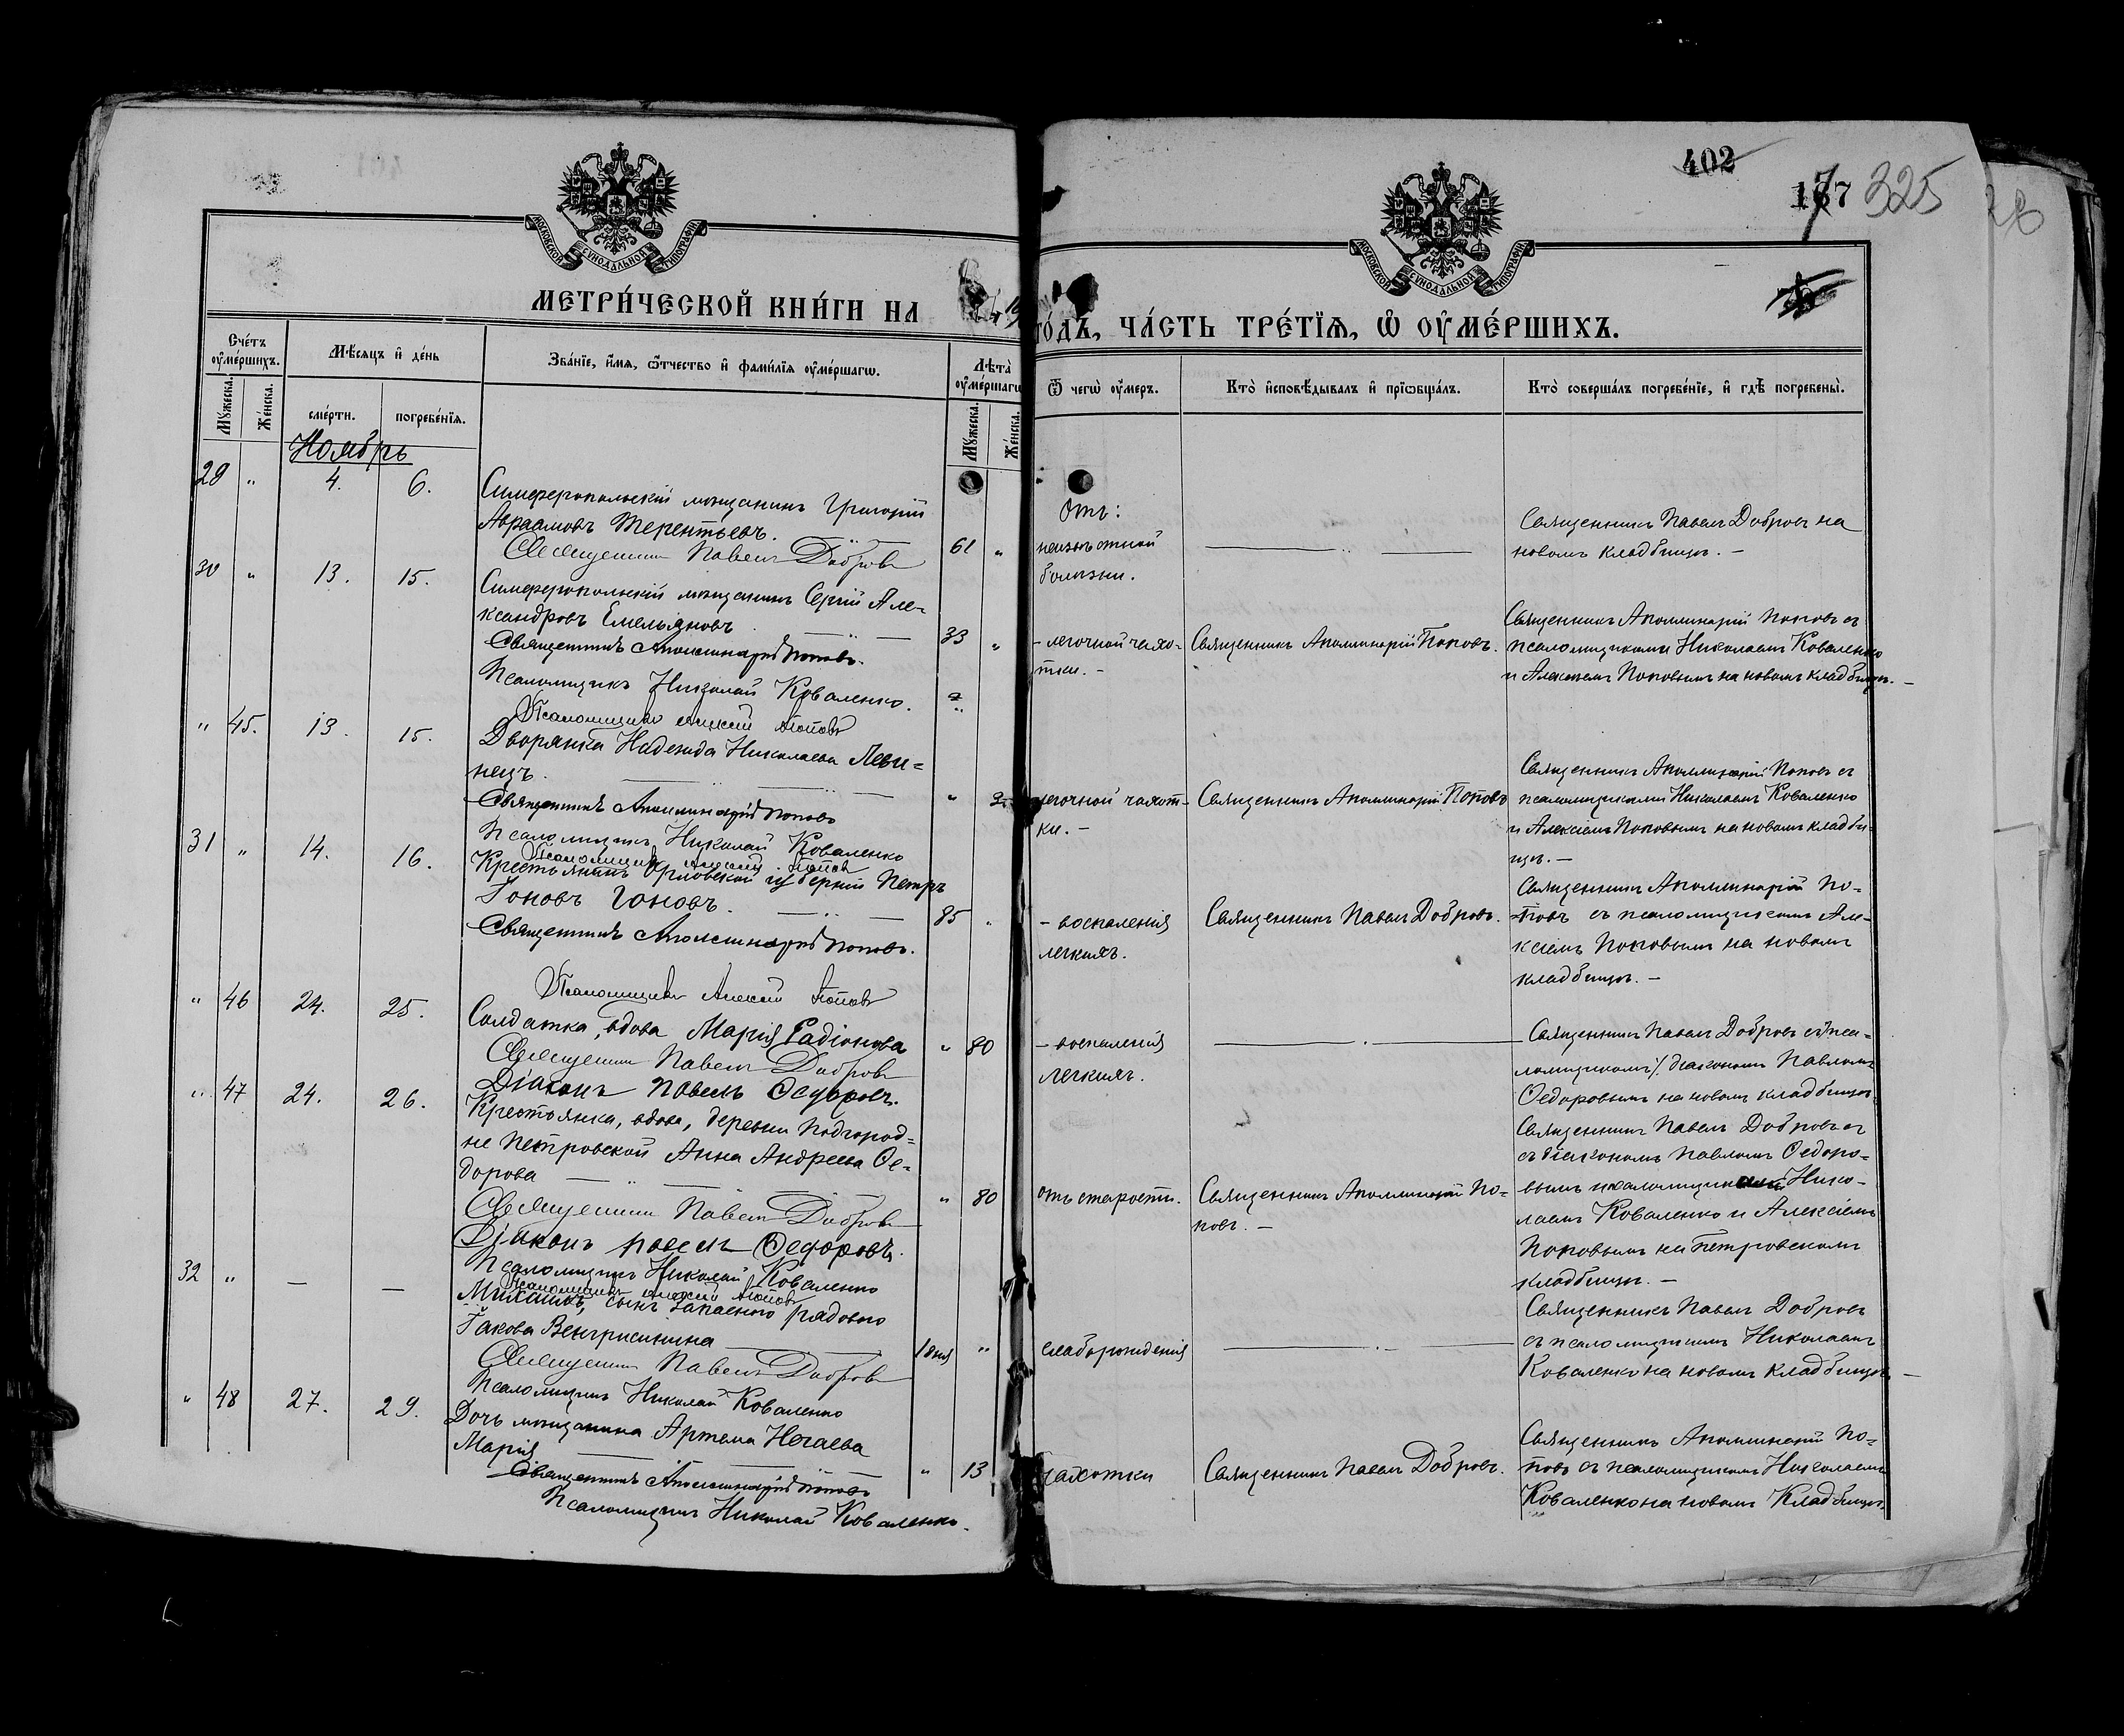 402
187 325
28
МОСКОВСКОЙ СѴНОДАЛЬНОЙ ТИПОГРАФІИ
МОСКОВСКОЙ СѴНОДАЛЬНОЙ ТИПОГРАФІИ
МЕТРИ́ЧЕСКОЙ КНИ́ГИ НА
ГО́ДЪ, ЧА́СТЬ ТРЕ́ТІѦ, Ѡ҆ ОУ҆МЕ́РШИХЪ.
Сче́тъ оу҆ме́ршихъ.
Мѣ́сяцъ и҆ де́нь
Зва́нїе, и҆́мя, ѻ҆́тчество и҆ фами́лїя оу҆ме́ршагѡ.
Лѣ́та оу҆ме́ршагѡ
Ѿ чегѡ̀ оу҆́меръ.
Кто̀ и҆сповѣ́дывалъ и҆ прїѡбща́лъ.
Кто̀ соверша́лъ погребе́нїе, и҆ гдѣ̀ погребены̀.
Мꙋ́жеска.
Же́нска.
сме́рти.
погребе́нїя.
Мꙋ́жеска.
Же́нска.
Ноябрь
29 " 4. 6.
Симферопольскій мѣщанинъ Григорій
Авраамовъ Терентьевъ.
Священникъ Павелъ Добровъ
61 "
Отъ:
неизвѣстной
болѣзни.
Священникъ Павелъ Добровъ на
новомъ кладбищѣ. —
30 " 13. 15.
Симферопольскій мѣщанинъ Сергій Але-
ксандровъ Емельяновъ
Священникъ Аполлинарій Поповъ.
Псаломщикъ Николай Коваленко.
Псаломщикъ Алексій Поповъ
33 "
- легочной чахо-
тки. -
Священникъ Аполлинарій Поповъ.
Священникъ Аполлинарій Поповъ съ
псаломщиками Николаемъ Коваленко
и Алексіемъ Поповымъ на новомъ кладбищѣ. —
" 45. 13. 15.
Дворянка Надежда Николаева Леви=
нецъ.
Священникъ Аполлинарій Поповъ
Псаломщикъ Николай Коваленко
Псаломщикъ Алексій Поповъ
"
легочной чахот-
ки. -
Священникъ Аполлинарій Поповъ
Священникъ Аполлинарій Поповъ съ
псаломщиками Николаемъ Коваленко
и Алексіемъ Поповымъ на новомъ кладби-
щѣ. —
31 " 14. 16.
Крестьянинъ Орловской губерніи Петръ
Іоновъ Гоновъ.
Священникъ Аполлинарій Поповъ.
Псаломщикъ Алексій Поповъ
85 "
- воспаленія
легкихъ.
Священникъ Павелъ Добровъ.
Священникъ Аполлинарій По-
повъ съ псаломщикомъ Але-
ксіемъ Поповымъ на новомъ
кладбищѣ. —
" 46 24. 25.
Солдатка, вдова Марія Радіонова
Священникъ Павелъ Добровъ
Діаконъ Павелъ Ѳедоровъ.
" 80
- воспаленія
легкихъ.
Священникъ Павелъ Добровъ съ пса-
ломщикомъ/ діакономъ Павломъ
Ѳедоровымъ на новомъ кладбищѣ
" 47 24. 26.
Крестьянка, вдова, деревни Подгород=
не Петровской Анна Андреева Ѳе-
дорова
Священникъ Павелъ Добровъ
Діаконъ Павелъ Ѳедоровъ.
Псаломщикъ Николай Коваленко
Псаломщикъ Алексій Поповъ
" 80
отъ старости.
Священникъ Аполлинарій По=
повъ. —
Священникъ Павелъ Добровъ съ
съ діакономъ Павломъ Ѳедоро=
вымъ и псаломщиками Нико-
лаемъ Коваленко и Алексіемъ
Поповымъ на Петровскомъ
кладбищѣ. —
32 " — —
Михаилъ, сынъ запаснаго рядового
Іакова
Священникъ Павелъ Добровъ
Псаломщикъ Николай Коваленко
1 дня "
слаборожденія
Священникъ Павелъ Добровъ
съ псаломщикомъ Николаемъ
Коваленко на новомъ кладбищѣ. —
" 48 27. 29.
Дочь мѣщанина Артема Нечаева
Марія
Священникъ Аполлинарій Поповъ
Псаломщикъ Николай Коваленко.
" 13
чахотки
Священникъ Павелъ Добровъ.
Священникъ Аполлинарій По=
повъ съ псаломщикомъ Николаемъ
Коваленко на новомъ Кладбищѣ